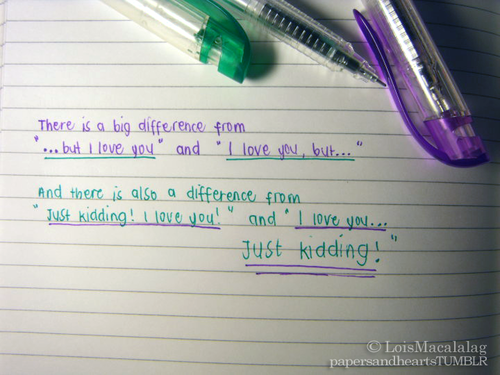 There is a big difference from
"...but I love you" and "I love you, but..."
And there is also a difference from
"Just kidding! I love you!" and "I love you...
Just kidding!"
© LoisMacalalag
papersandheartsTUMBLR